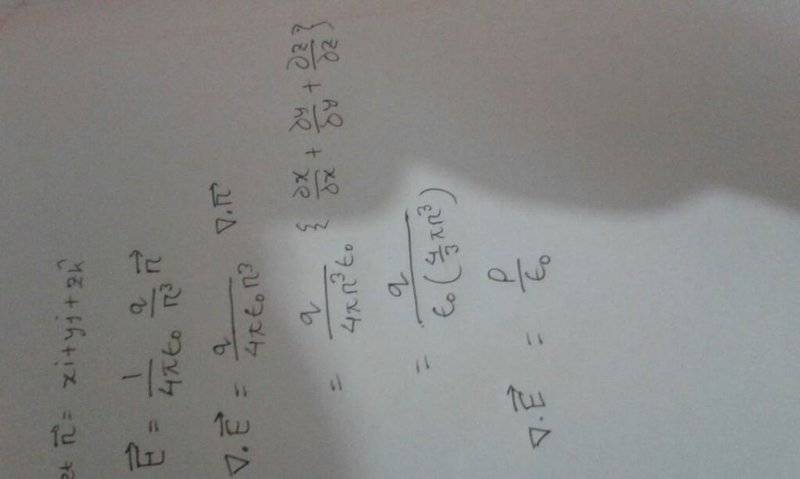 et r⃗ = xi + yj + zk̂
E⃗ = 1/4πε₀ q/r³ r⃗
∇.E⃗ = q/4πε₀r³ ∇.r⃗
= q/4πr³ε₀ {∂x/∂x + ∂y/∂y + ∂z/∂z}
= q/ε₀(4/3 πr³)
∇.E⃗ = ρ/ε₀